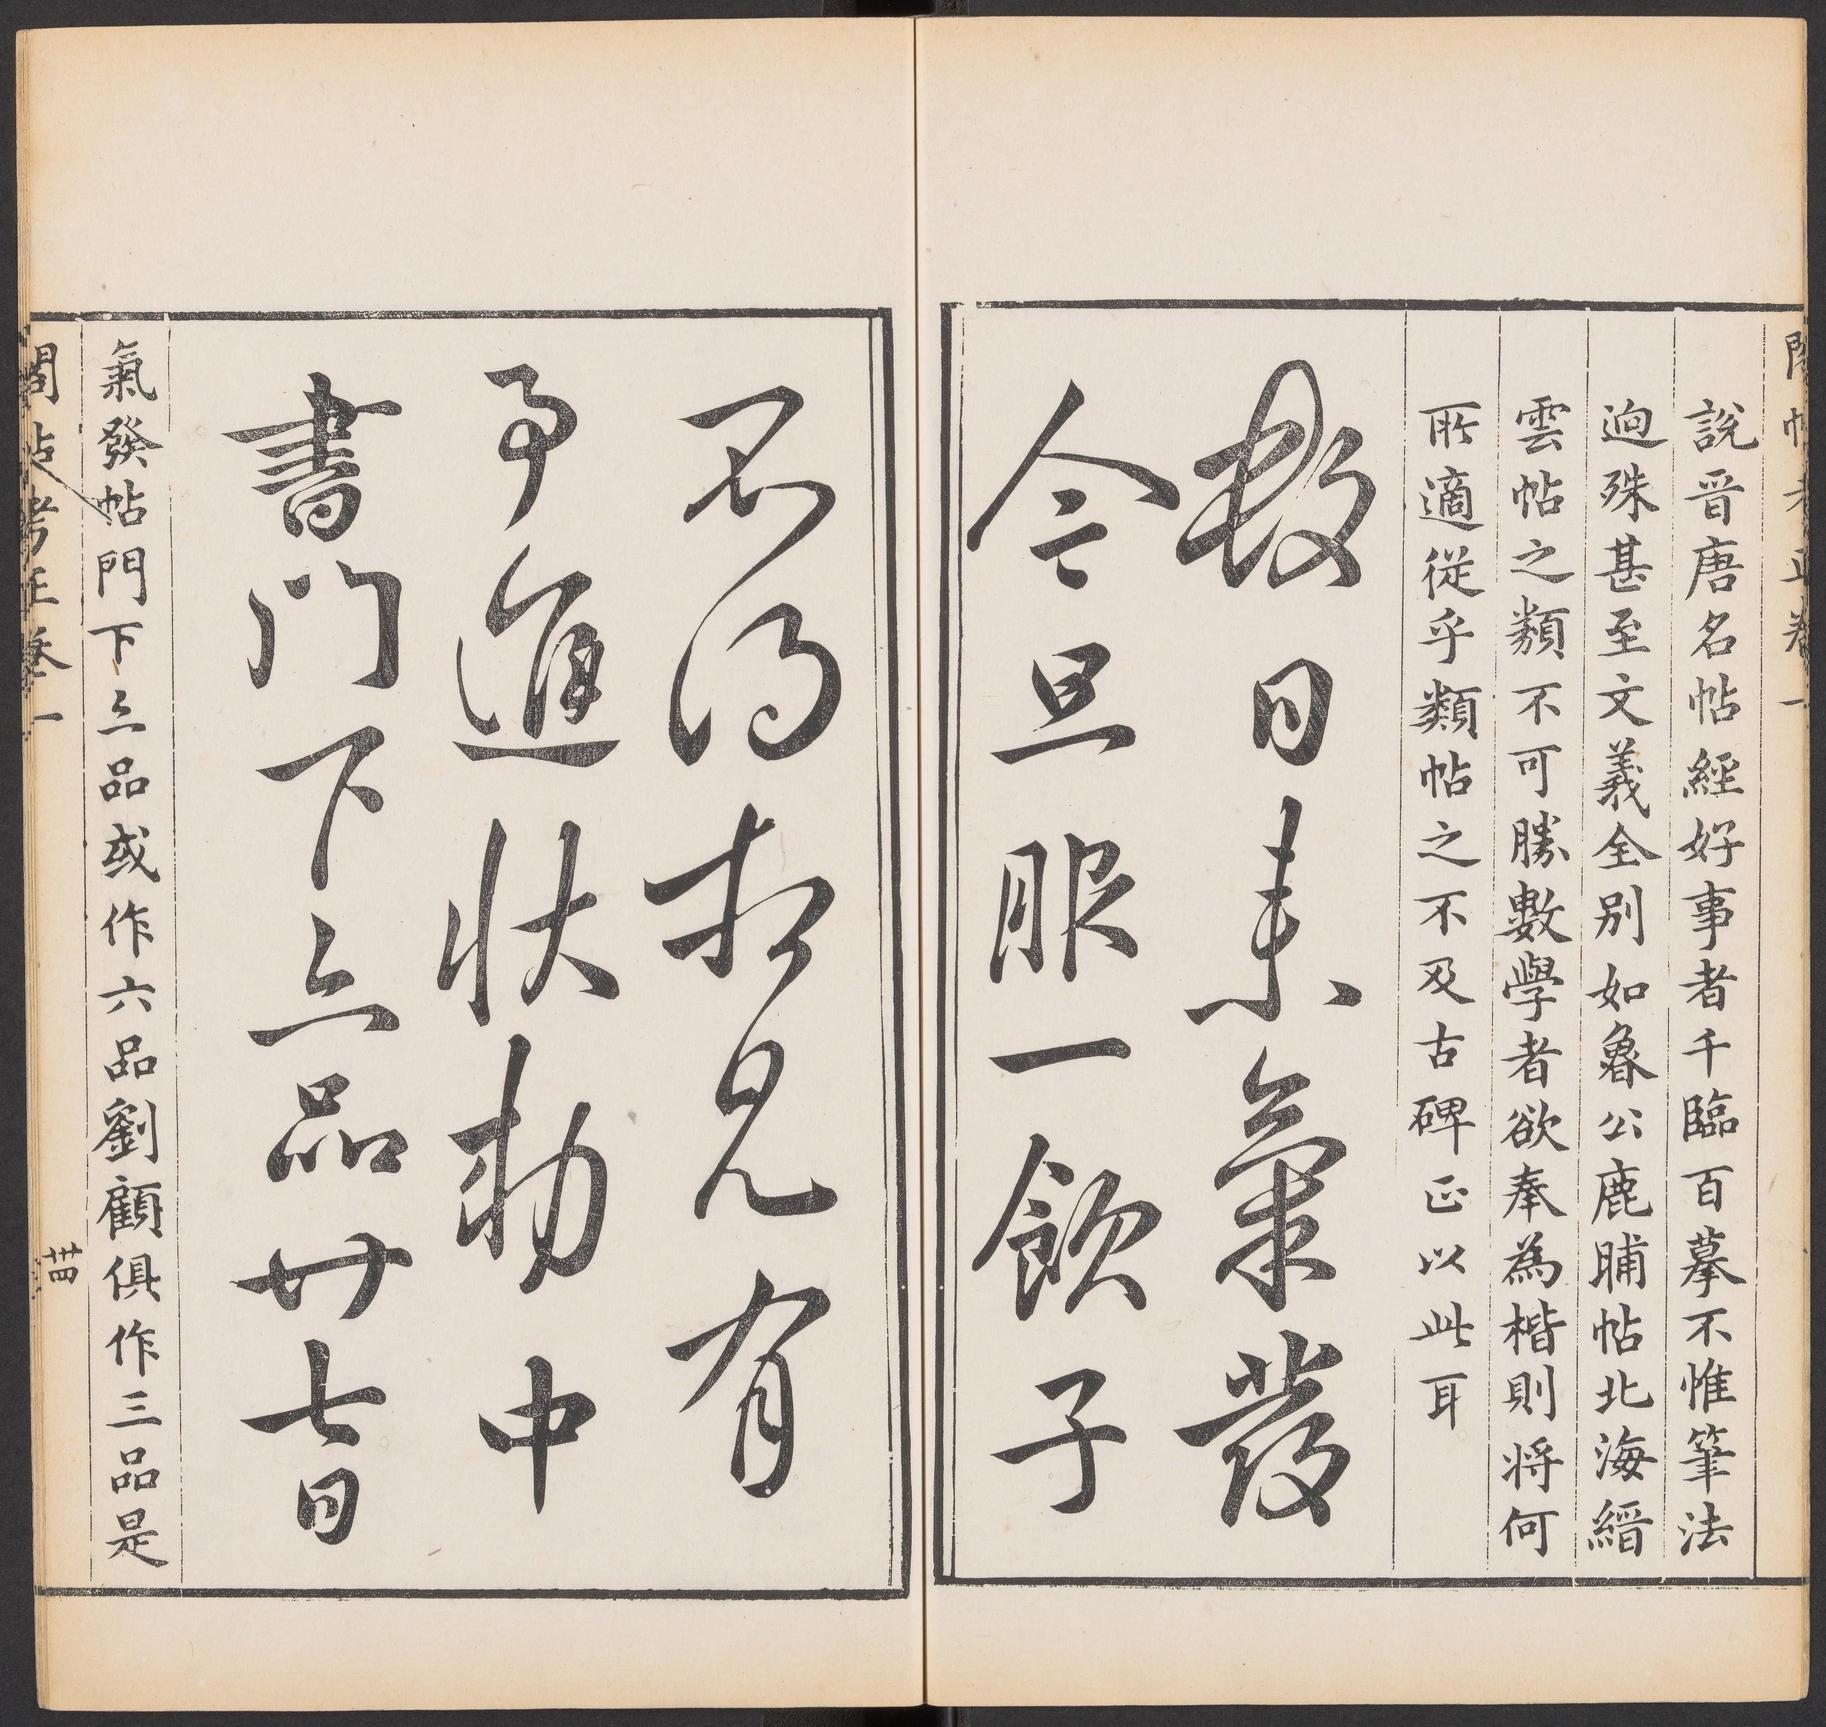 說晉唐名帖經好事者千臨百摹不惟筆法
逈殊甚至文義全别如魯公鹿脯帖北海縉
雲帖之類不可勝數學者欲奉為楷則將何
所適從乎類帖之不及古碑正以此耳
數日來氣發
今旦服一飲子
不得相見有
事進狀勅中
書門下三品廿七日
氣發帖門下三品或作六品劉顧俱作三品是
閣帖考正卷一
廿四